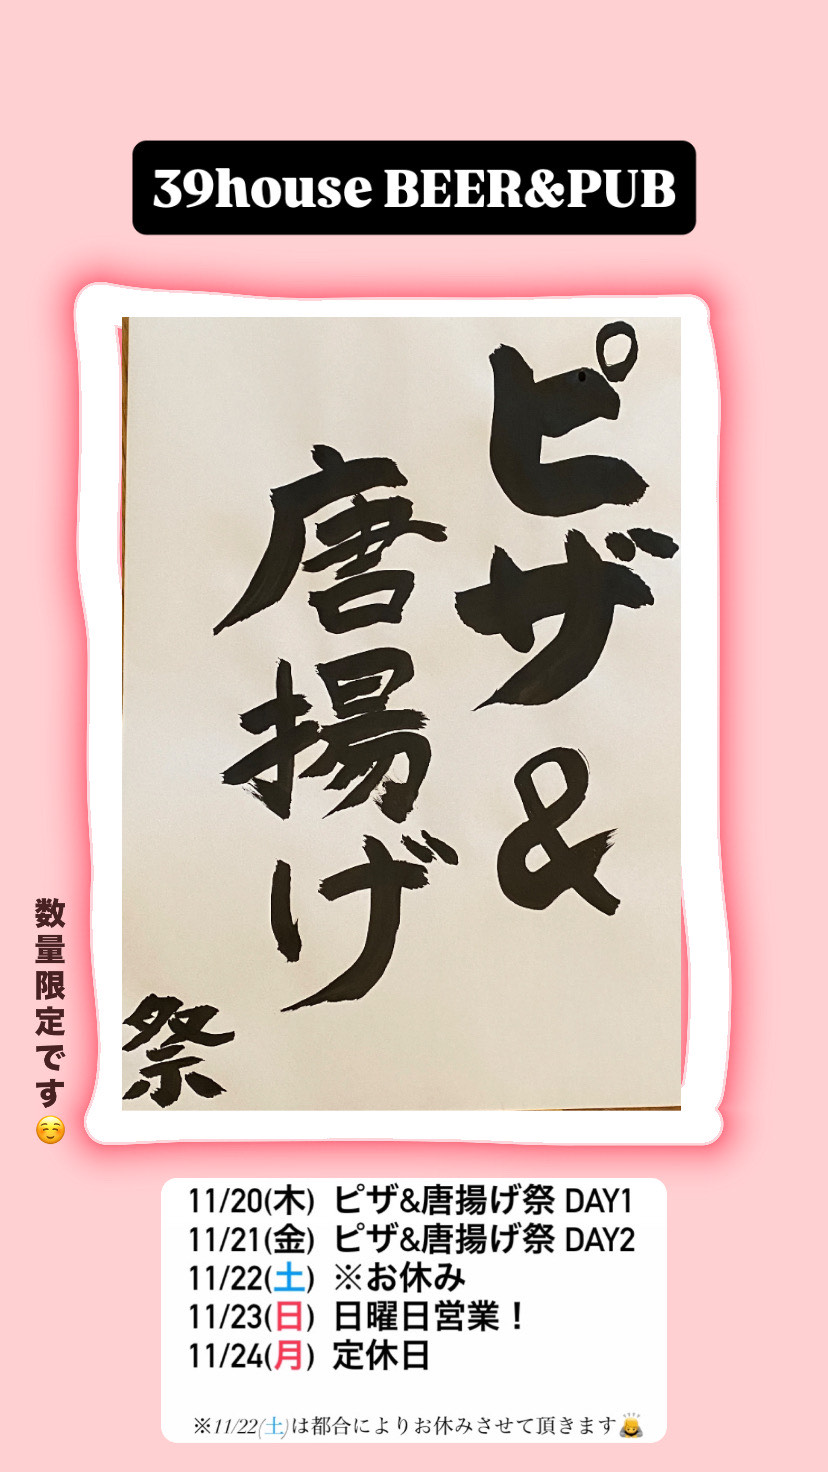 39house BEER&PUB
ピザ&
唐揚げ
祭
数量限定です☺️
11/20(木) ピザ&唐揚げ祭 DAY1
11/21(金) ピザ&唐揚げ祭 DAY2
11/22(土) ※お休み
11/23(日) 日曜日営業！
11/24(月) 定休日
※11/22(土)は都合によりお休みさせて頂きます🙇